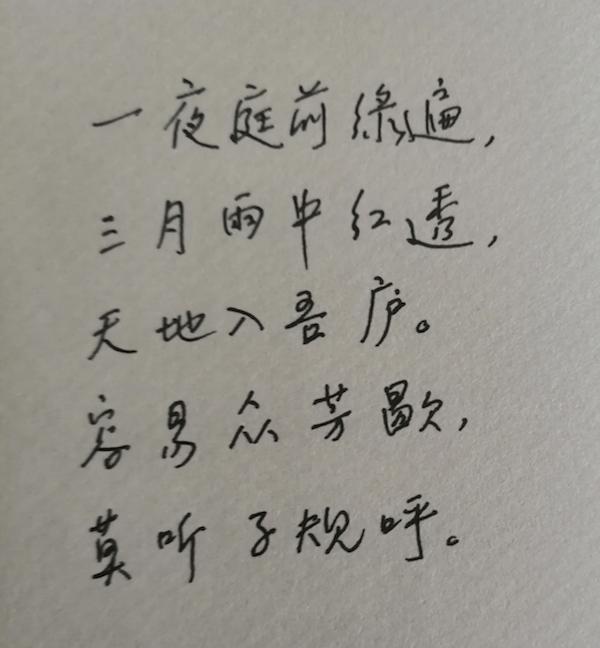 一夜庭前綠遍，
三月雨中红透，
天地入吾庐。
容易众芳歇，
莫听子规呼。